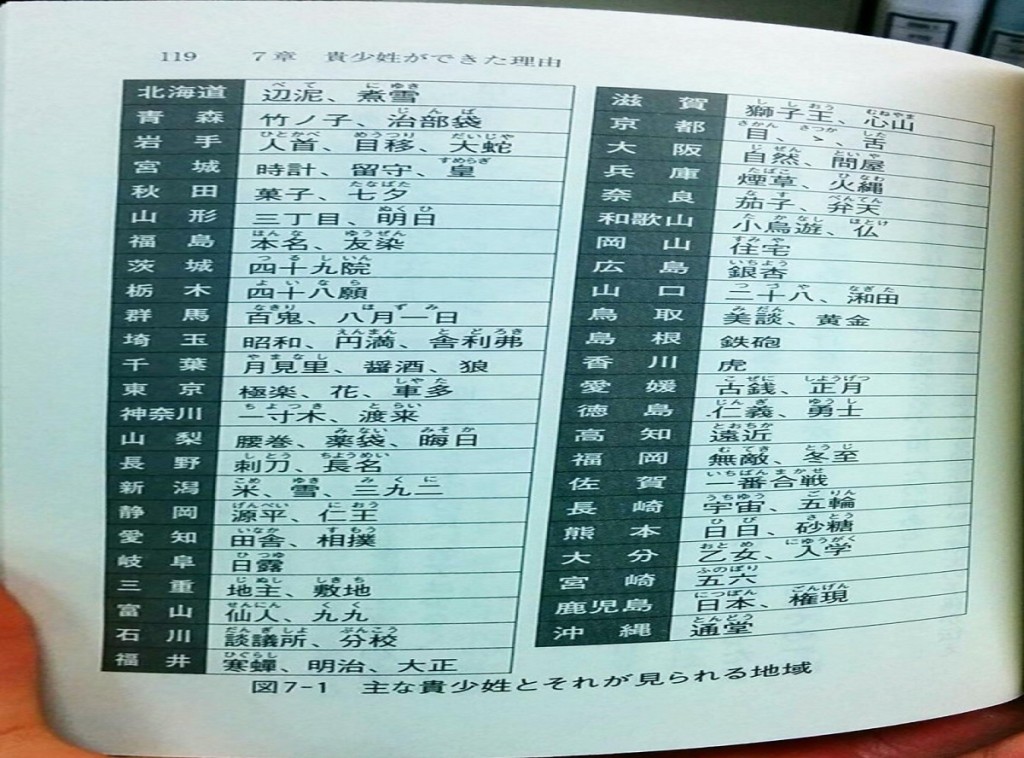 119 7章 貴少姓ができた理由
北海道 辺泥、煮雪
青森 竹ノ子、治部袋
岩手 人首、目移、大蛇
宮城 時計、留守、皇
秋田 菓子、七夕
山形 三丁目、明日
福島 本名、友染
茨城 四十九院
栃木 四十八願
群馬 百鬼、八月一日
埼玉 昭和、円満、舎利弗
千葉 月見里、醤酒、狼
東京 極楽、花、車多
神奈川 一寸木、渡来
山梨 腰巻、薬袋、晦日
長野 刺刀、長名
新潟 米、雪、三九二
静岡 源平、仁王
愛知 田舎、相撲
岐阜 日露
三重 地主、敷地
富山 仙人、九九
石川 談議所、分校
福井 寒蟬、明治、大正
滋賀 獅子王、心山
京都 目、、舌
大阪 自然、問屋
兵庫 煙草、火縄
奈良 茄子、弁天
和歌山 小鳥遊、仏
岡山 住宅
広島 銀杏
山口 二十八、和田
鳥取 美談、黄金
島根 鉄砲
香川 虎
愛媛 古銭、正月
徳島 仁義、勇士
高知 遠近
福岡 無敵、冬至
佐賀 一番合戦
長崎 宇宙、五輪
熊本 日日、砂糖
大分 乙女、入学
宮崎 五六
鹿児島 日本、権現
沖縄 通堂
図7-1 主な貴少姓とそれが見られる地域